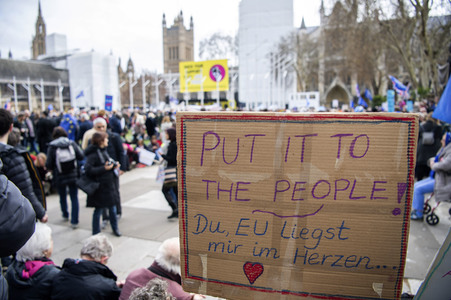 PUT IT TO
THE PEOPLE!
Du, EU liegst
mir im Herzen...